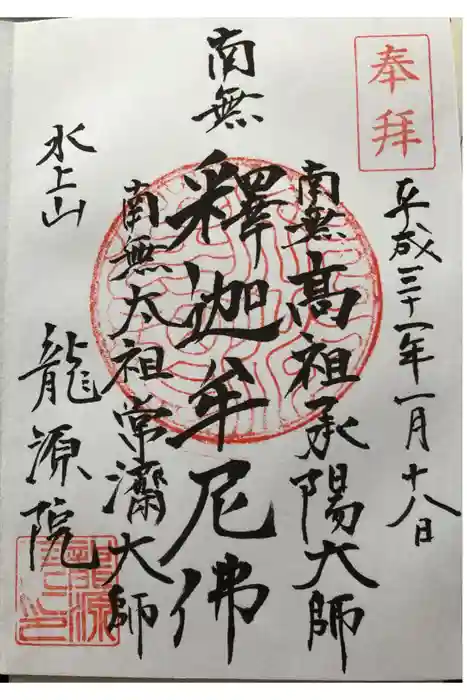 奉拝
平成三十一年一月十八日
南無高祖承陽大師
南無釋迦牟尼佛
南無太祖常濟大師
水上山
龍源院